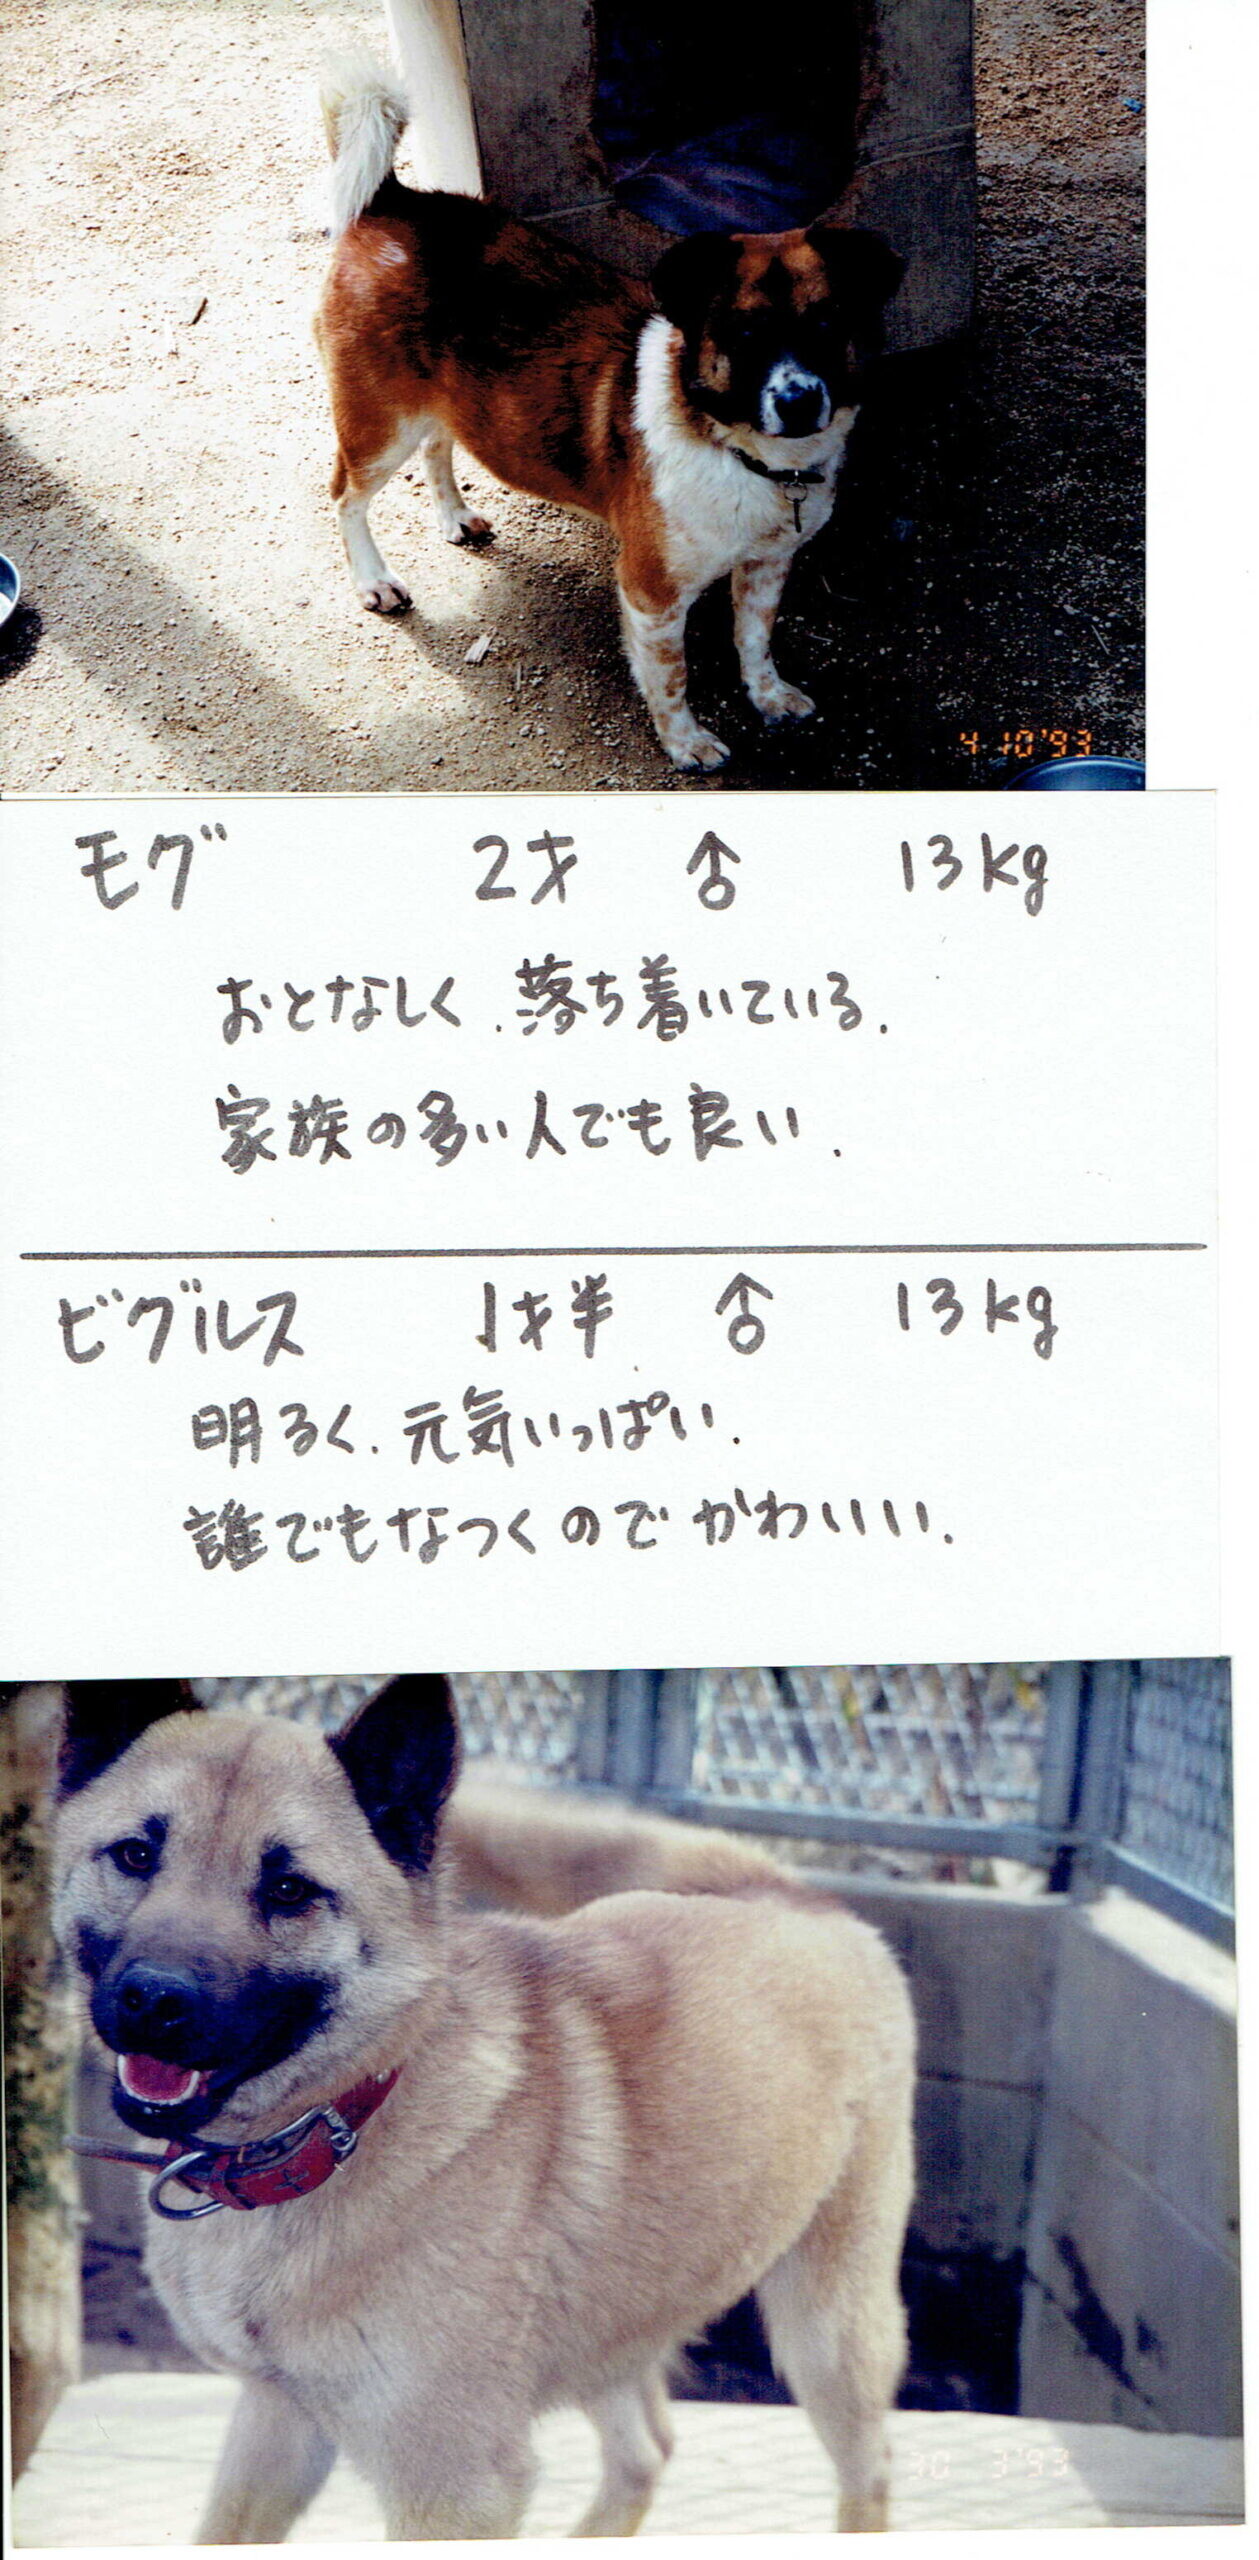 4 10'93
モグ 2才 ♂ 13kg
おとなしく、落ち着いている.
家族の多い人でも良い.
ビグルス 1才半 ♂ 13kg
明るく、元気いっぱい.
誰でもなつくのでかわいい.
30 3'93